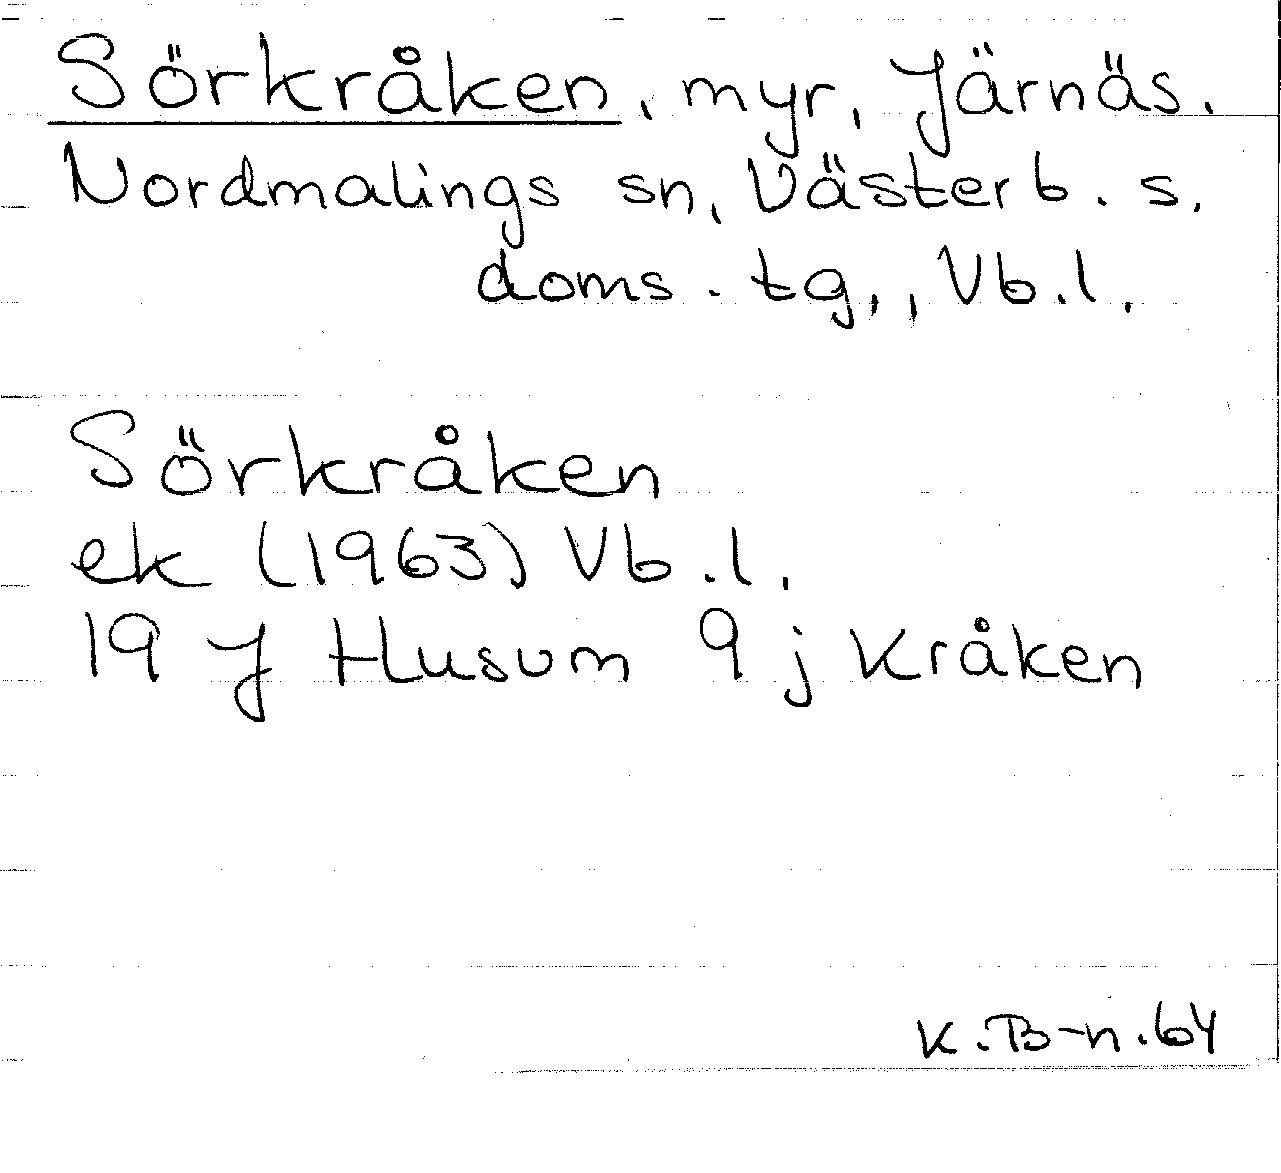 Sörkråken, myr, Järnäs.
Nordmalings sn, Västerb. s.
doms. tg,, Vb.l.
Sörkråken
ek (1963) Vb.l.
19 J Husum 9 j Kråken
K.B-n.64